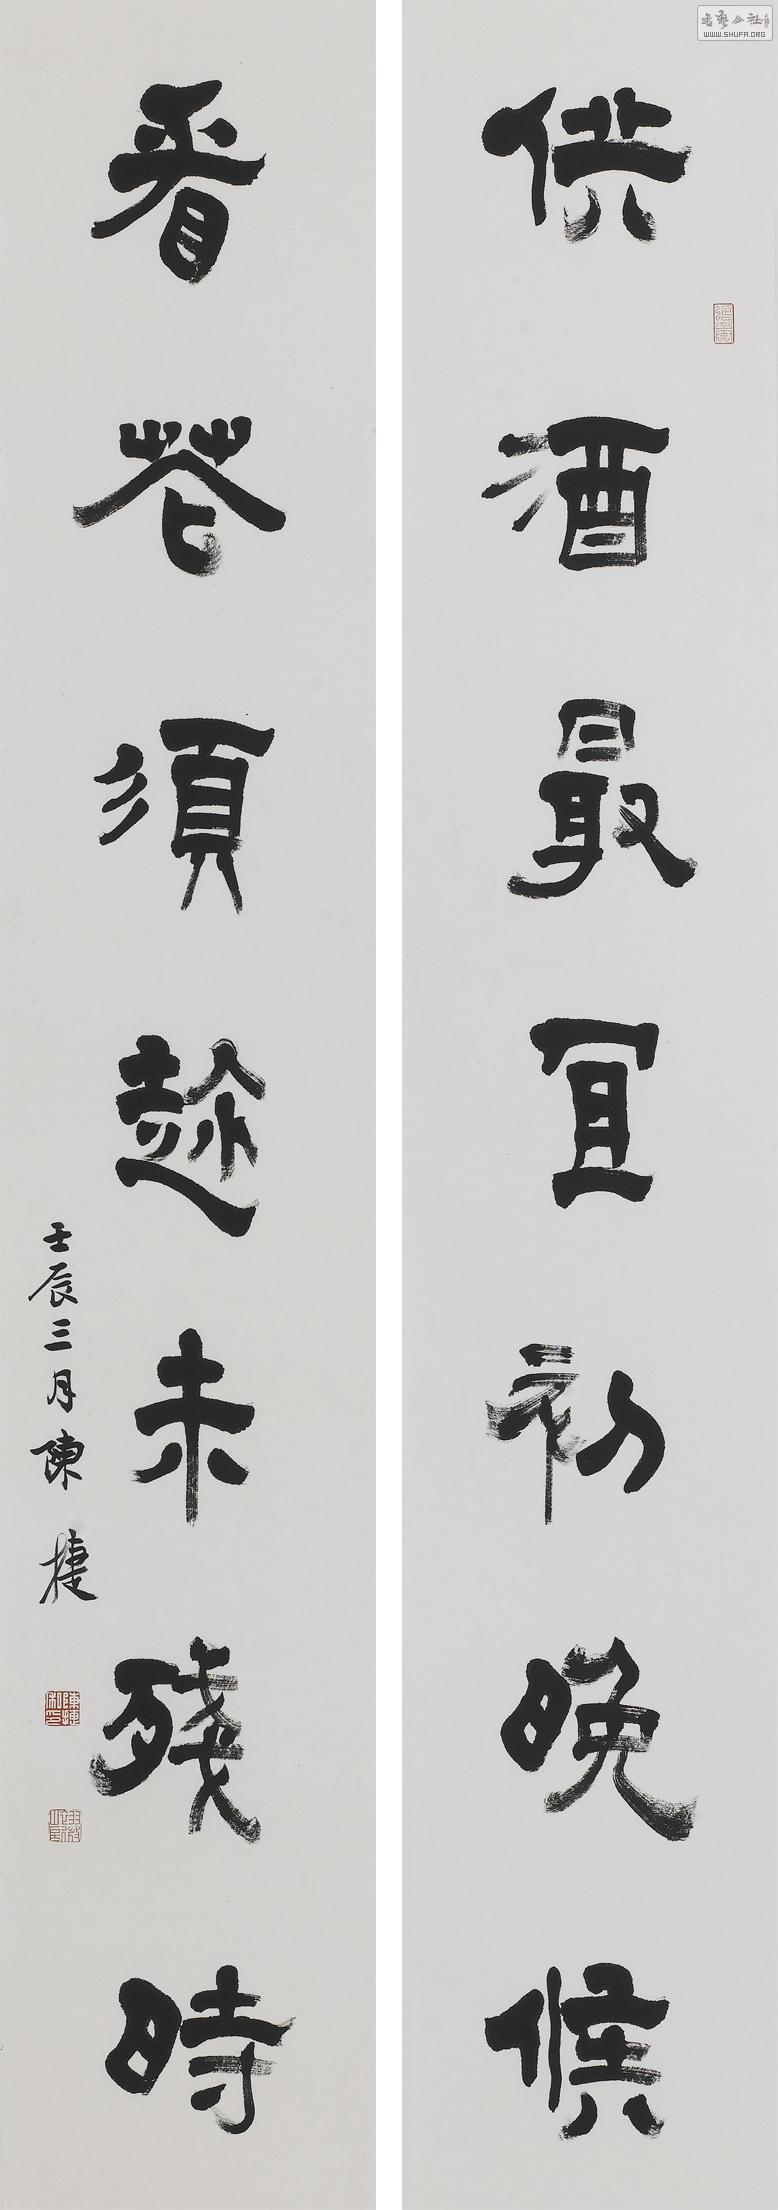 供酒最宜初晚候
看花須趂未殘時
壬辰三月陳捷
WWW.SHUFA.ORG